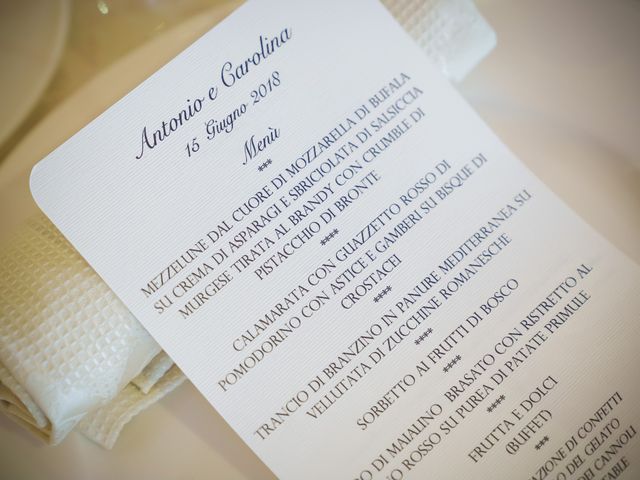 Antonio e Carolina
15 Giugno 2018
Menù
***
MEZZELUNE DAL CUORE DI MOZZARELLA DI BUFALA
SU CREMA DI ASPARAGI E SBRICIOLATA DI SALSICCIA
MURGESE TIRATA AL BRANDY CON CRUMBLE DI
PISTACCHIO DI BRONTE
****
CALAMARATA CON GUAZZETTO ROSSO DI
POMODORINO CON ASTICE E GAMBERI SU BISQUE DI
CROSTACEI
****
TRANCIO DI BRANZINO IN PANURE MEDITERRANEA SU
VELLUTATA DI ZUCCHINE ROMANESCHE
****
SORBETTO AI FRUTTI DI BOSCO
****
DI MAIALINO BRASATO CON RISTRETTO AL
ROSSO SU PUREA DI PATATE PRIMULE
****
FRUTTA E DOLCI
(BUFFET)
***
DI CONFETTI
DEL GELATO
DEI CANNOLI